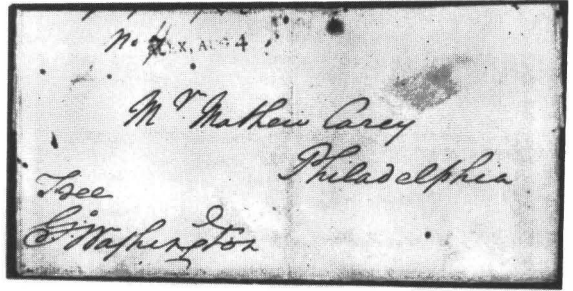 No. 7
ALEX, AUG 4
Mr Mathew Carey
Philadelphia
Free
G:Washington